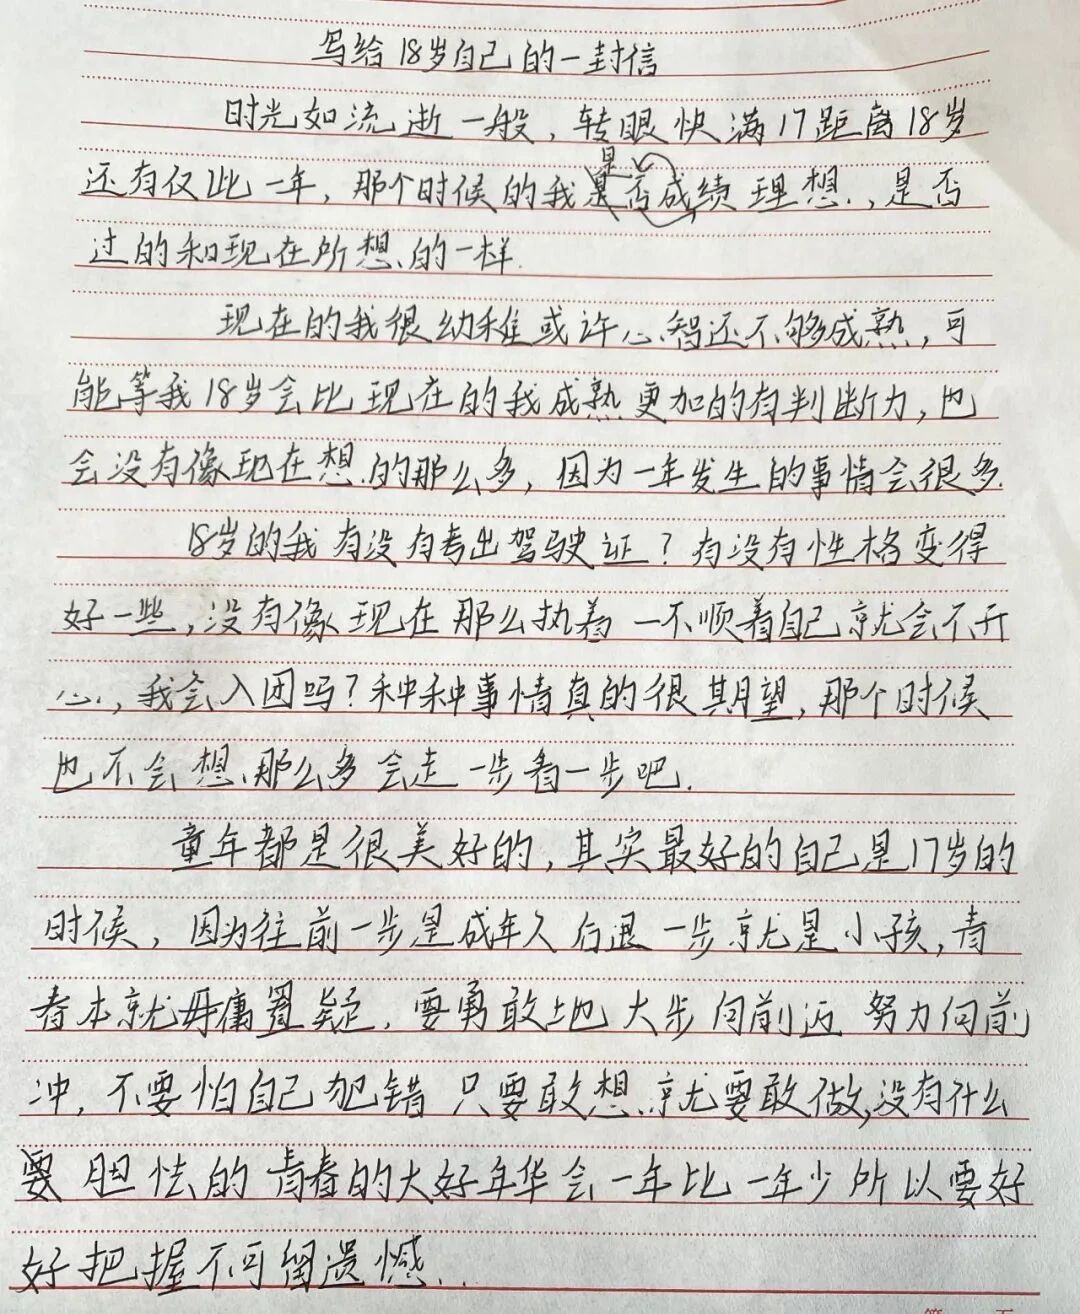 写给18岁自己的一封信
时光如流逝一般，转眼快满17距离18岁
还有仅此一年，那个时候的我是否成绩理想，是否
过的和现在所想的一样.
现在的我很幼稚或许心智还不够成熟，可
能等我18岁会比现在的我成熟更加的有判断力，也
会没有像现在想的那么多，因为一年发生的事情会很多.
18岁的我有没有考出驾驶证？有没有性格变得
好一些，没有像现在那么执着一不顺着自己就会不开
心，我会入团吗？种种事情真的很期望，那个时候
也不会想那么多会走一步看一步吧.
童年都是很美好的，其实最好的自己是17岁的
时候，因为往前一步是成年人后退一步就是小孩，青
春本就毋庸置疑，要勇敢地大步向前迈 努力向前
冲，不要怕自己犯错 只要敢想就要敢做，没有什么
要胆怯的 青春的大好年华会一年比一年少所以要好
好把握不可留遗憾...